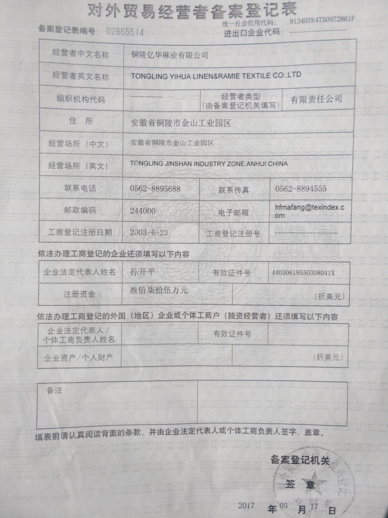 对外贸易经营者备案登记表
统一社会信用代码：
91340764750972861F
备案登记表编号：02865514
进出口企业代码：
经营者中文名称 铜陵亿华麻业有限公司
经营者英文名称 TONGLING YIHUA LINEN&RAMIE TEXTILE CO.,LTD
组织机构代码 经营者类型（由备案登记机关填写） 有限责任公司
住 所 安徽省铜陵市金山工业园区
经营场所（中文） 安徽省铜陵市金山工业园区
经营场所（英文） TONGLING JINSHAN INDUSTRY ZONE.ANHUI CHINA
联系电话 0562-8895688 联系传真 0562-8894555
邮政编码 244000 电子邮箱 hfmafang@texindex.com
工商登记注册日期 2003-6-23 工商登记注册号
依法办理工商登记的企业还须填写以下内容
企业法定代表人姓名 孙开平 有效证件号 44030619550308041X
注册资金 叁佰柒拾伍万元 (折美元)
依法办理工商登记的外国（地区）企业或个体工商户（独资经营者）还须填写以下内容
企业法定代表人/
个体工商负责人姓名 有效证件号
企业资产/个人财产 (折美元)
备注
填表前请认真阅读背面的条款，并由企业法定代表人或个体工商负责人签字、盖章。
备案登记机关
签 章
2017 年 05 月 17 日